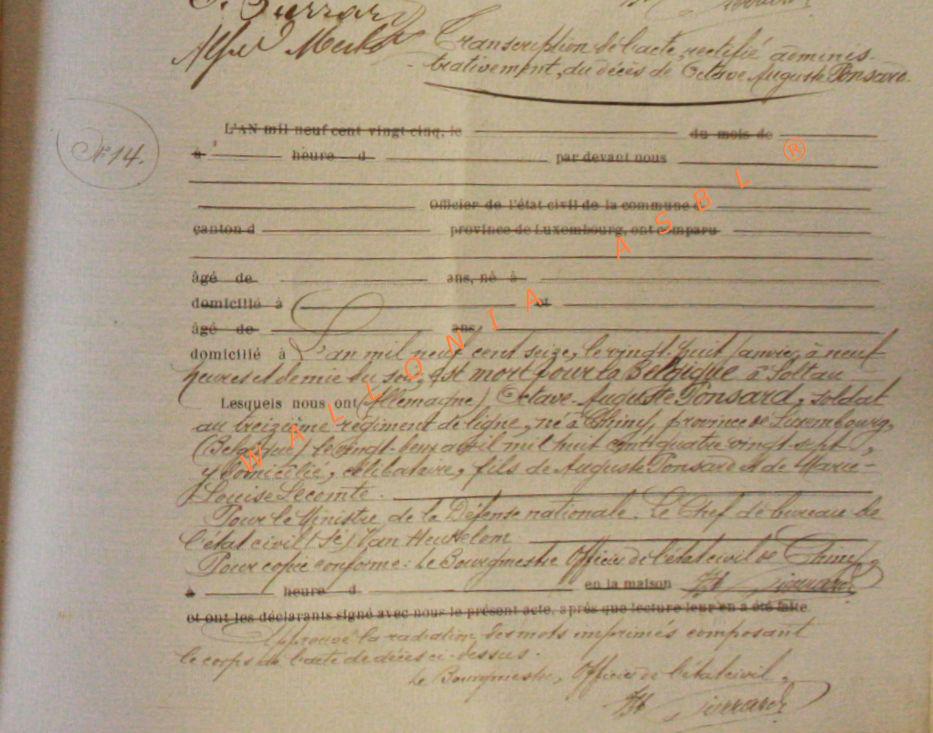 Transcription de l'acte, rectifié adminis-
trativement, du décès de Octave Auguste Ponsard.
N° 14.
L'AN mil neuf cent vingt cinq, le du mois de
à heure d par devant nous
Officier de l'état civil de la commune d
canton d province de Luxembourg, ont comparu
âgé de ans, né à
domicilié à et
âgé de ans,
domicilié à L'an mil neuf cent seize, le vingt-huit janvier, à neuf
heures et demie du soir, est mort pour la Belgique à Soltau
Lesquels nous ont (Allemagne) Octave-Auguste Ponsard, soldat
au treizième régiment de ligne, né à Chiny, province de Luxembourg,
(Belgique) le vingt-deux avril mil huit cent quatre vingt-sept,
y domicilié, célibataire, fils de Auguste Ponsard et de Marie-
Louise Lecomte.
Pour le Ministre de la Défense nationale. Le Chef de bureau de
l'état civil (sé) Van Heukelom
Pour copie conforme: Le Bourgmestre Officier de l'état civil de Chiny,
à heure d en la maison
et ont les déclarants signé avec nous le présent acte, après que lecture leur en a été faite.
Approuvé la radiation des mots imprimés composant
le corps de l'acte de décès ci-dessus.
Le Bourgmestre, Officier de l'état civil,
WALLONIA ASBL ®